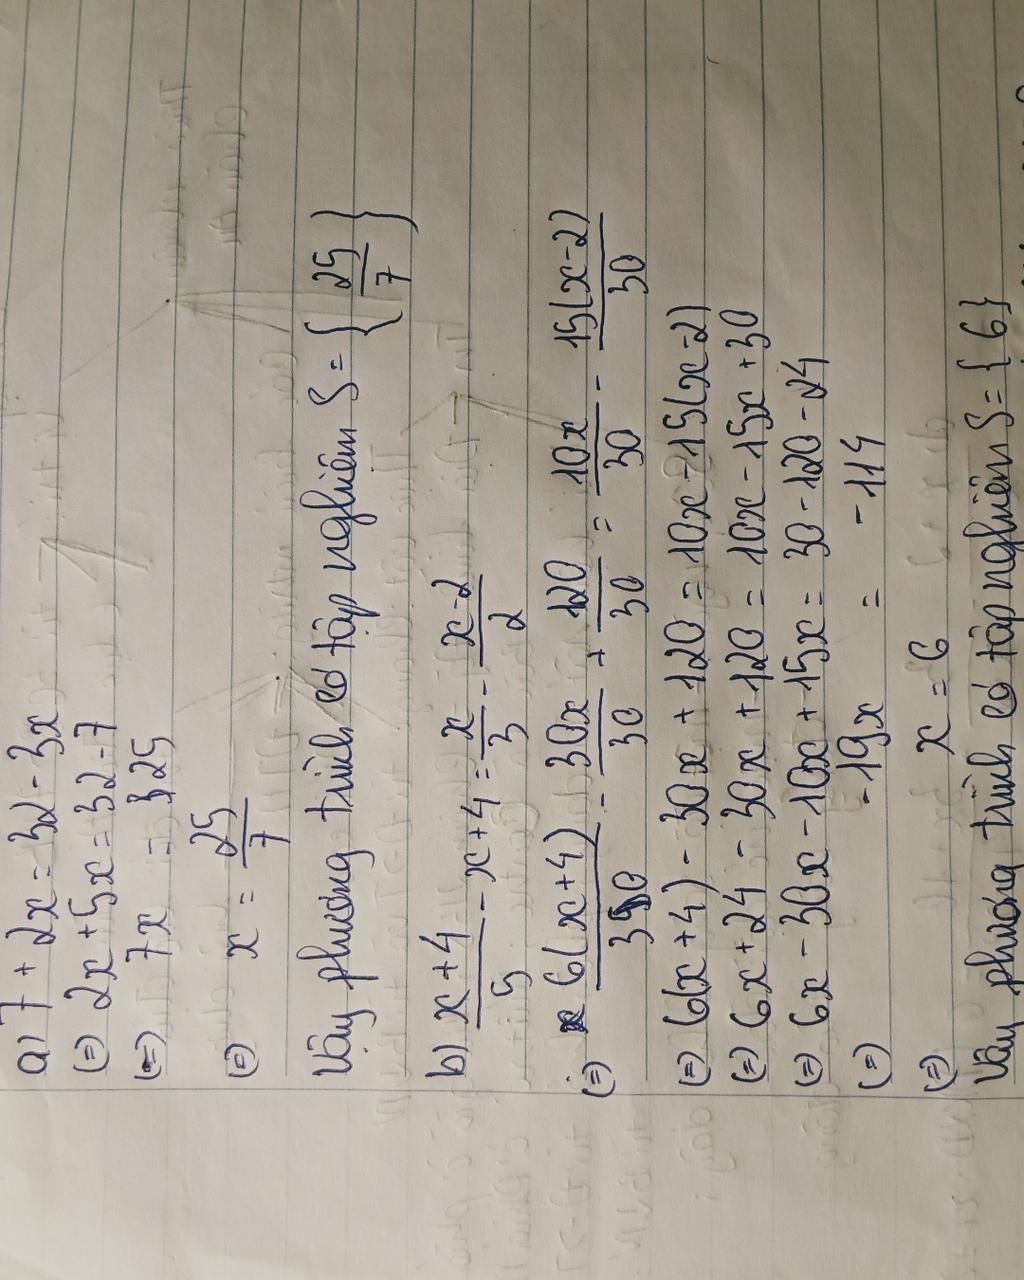 a) 7 + 2x = 32 - 3x
(=) 2x + 5x = 32 - 7
(=) 7x = 325
(=) x = 25/7
Vậy phương trình có tập nghiệm S = { 25/7 }
b) x+4/5 - x + 4 = x/3 - x-2/2
(=) 6(x+4)/30 - 30x/30 + 120/30 = 10x/30 - 15(x-2)/30
(=) 6(x+4) - 30x + 120 = 10x - 15(x-2)
(=) 6x + 24 - 30x + 120 = 10x - 15x + 30
(=) 6x - 30x - 10x + 15x = 30 - 120 - 24
(=) -19x = -114
(=) x = 6
Vậy phương trình có tập nghiệm S = { 6 }